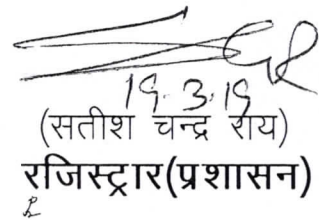 19.3.19
(सतीश चन्द्र राय)
रजिस्ट्रार(प्रशासन)